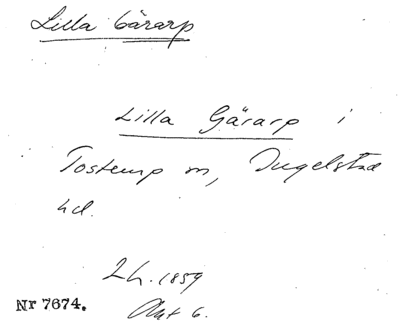 Lilla Gärarp
Lilla Gärarp i
Tosterup sn, Ingelstad
hd.
Lh. 1859
Nr 7674. Akt 6.